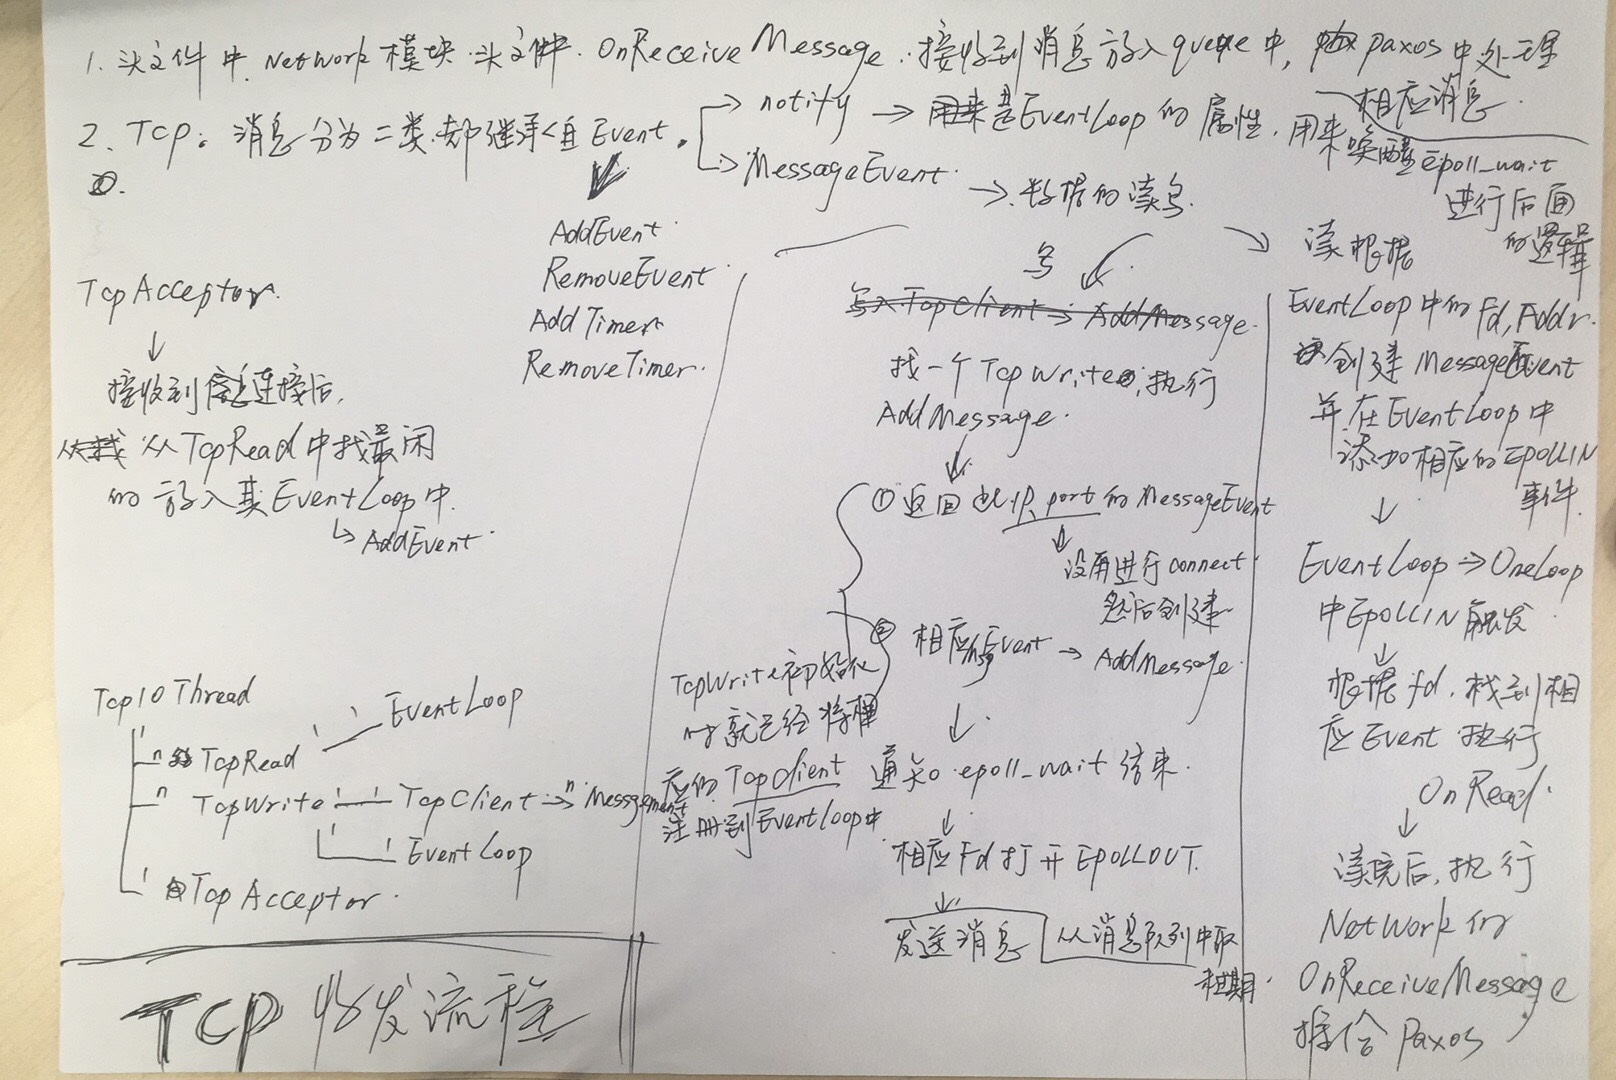 1. 头文件中. Network 模块.头文件. OnReceiveMessage. 接收到消息放入queue中, paxos中处理
相应消息.
2. Tcp: 消息分为二类.都继承自Event.
notify → 是EventLoop的属性. 用来唤醒epoll_wait
进行后面
的逻辑
MessageEvent. → 数据的读写.
AddEvent.
RemoveEvent.
Add Timer
RemoveTimer.
TcpAcceptor.
↓
接收到连接后,
从TcpRead中找最闲
的 放入其EventLoop中.
↳ AddEvent.
Tcp10Thread
n TcpRead
EventLoop
n TcpWrite — TcpClient → n Message
EventLoop
TcpAcceptor.
TCP 收发流程
写
写入TcpClient → AddMessage.
找一个TcpWrite,执行
AddMessage.
↓
① 返回此IP, port的MessageEvent
↓
没有进行connect.
然后创建
② 相应Event → AddMessage.
TcpWrite初始化
时就已经将相
应的TcpClient
注册到EventLoop中
↓
通知 epoll_wait 结束.
↓
相应Fd打开EPOLLOUT.
↓
发送消息
从消息队列中取
读根据
EventLoop中的Fd, Addr.
创建MessageEvent
并在EventLoop中
添加相应的EPOLLIN
事件.
↓
EventLoop → OneLoop
中EPOLLIN触发
↓
根据fd. 找到相
应Event 执行
OnRead.
↓
读完后,执行
NetWork的
OnReceiveMessage
推给 Paxos